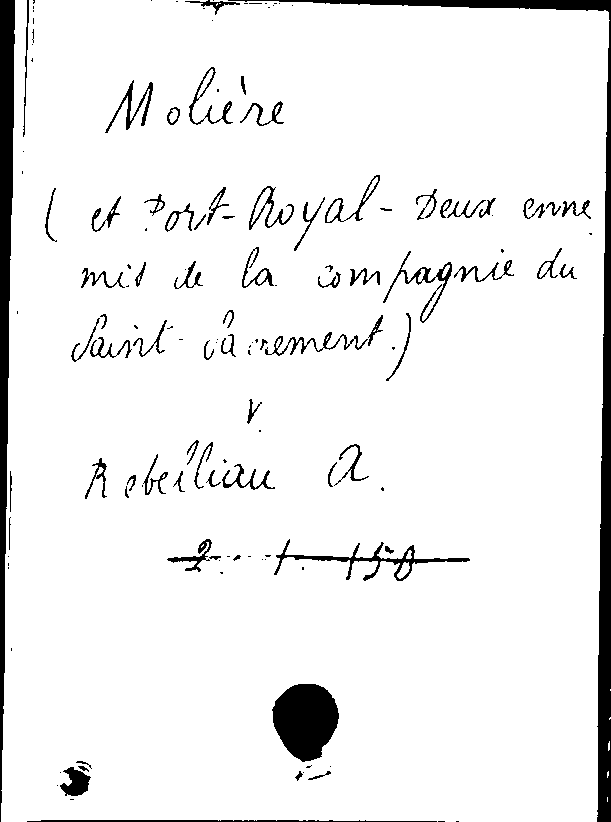 Molière
( et Port-Royal - Deux enne
mis de la compagnie du
Saint-Sacrement.)
V.
Rebelliau A.
2. 1. 150